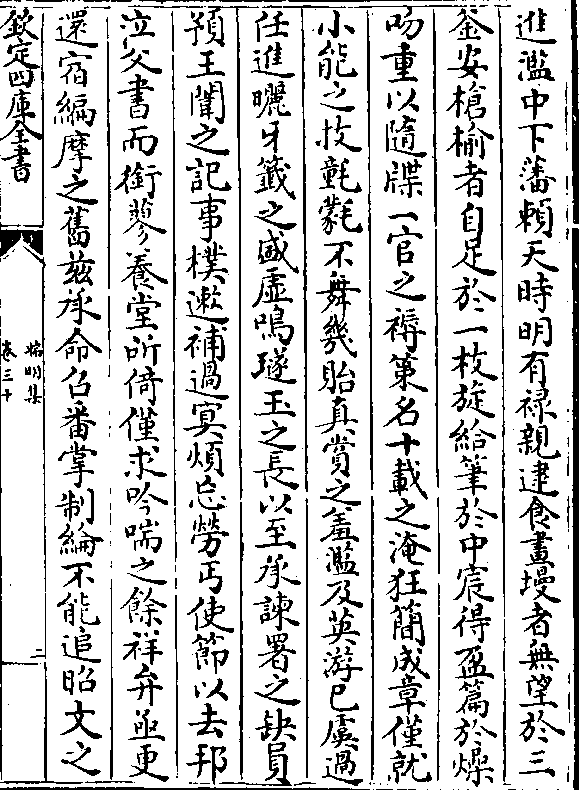 進濫中下藩頼天時明有禄親逮食畫墁者無望於三
釡安槍榆者自足於一枝旋給筆於中宸得盈篇於燥
吻重以隨牒一官之褥第名十載之淹狂簡成章僅就
小能之技氃氋不舞幾貽真賞之羞濫及英游已虞過
任進曬牙籖之盛虚鳴璲玉之長以至承諫署之缺員
預王闈之記事樸遬補過㝠煩忘勞丐使節以去邦
泣父書而銜蓼養堂所倚僅求吟喘之餘祥弁亟更
還宿編摩之舊兹承命召畨掌制綸不能追昭文之
欽定四庫全書
端明集
卷三十
二